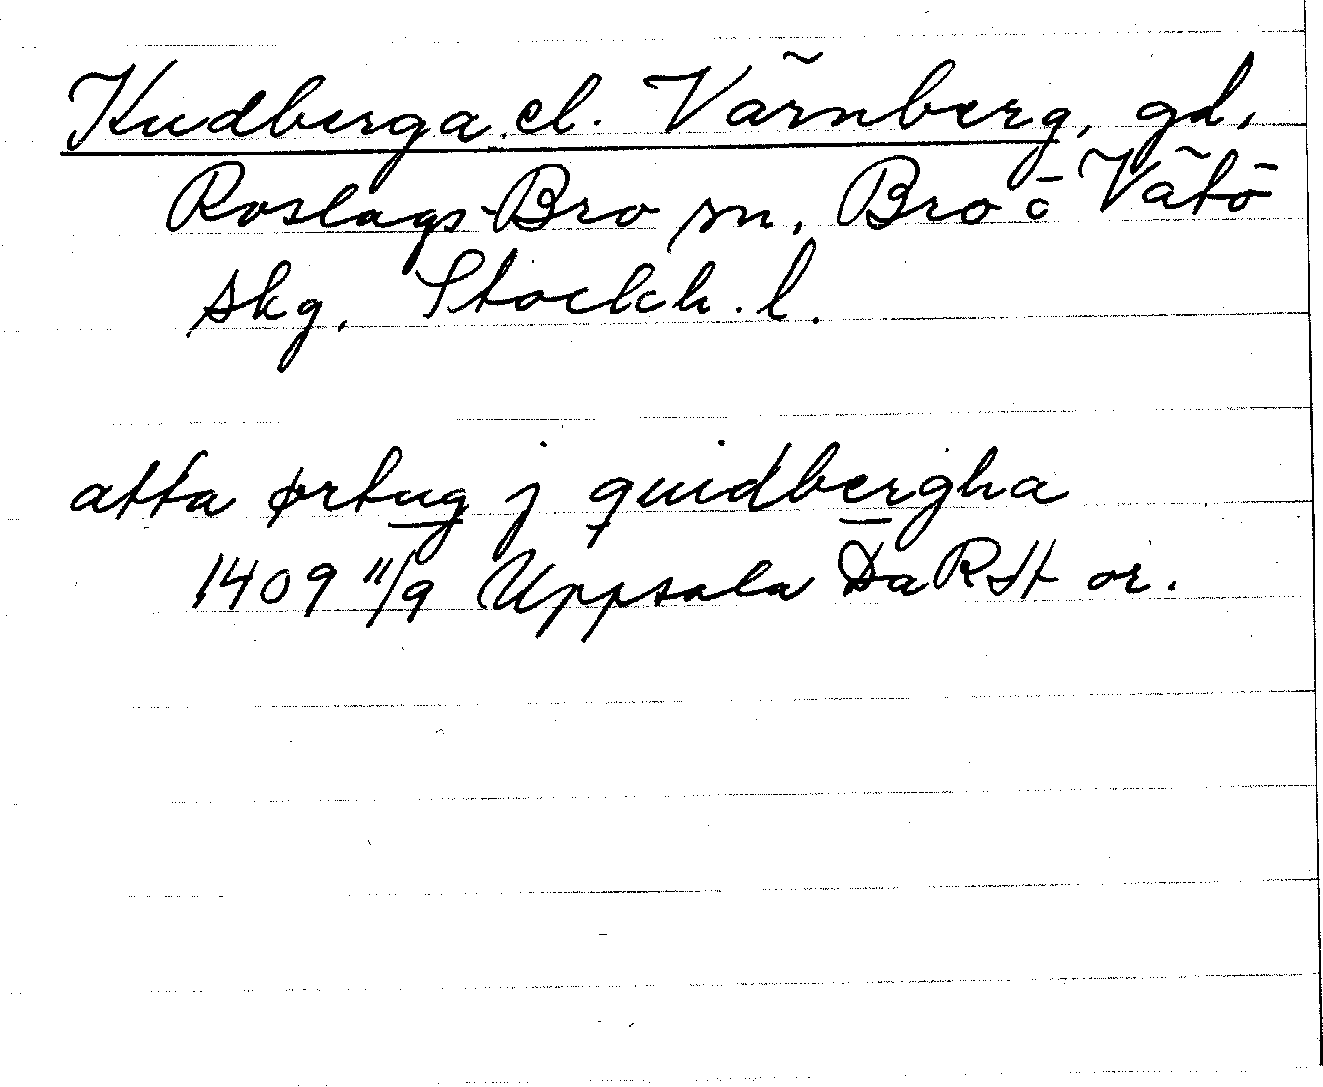 Kudberga el. Värnberg, gd,
Roslags-Bro sn, Bro o Vätö
skg, Stockh. l.
atta ørtug j quidbergha
1409 11/9 Uppsala Da RSt or.